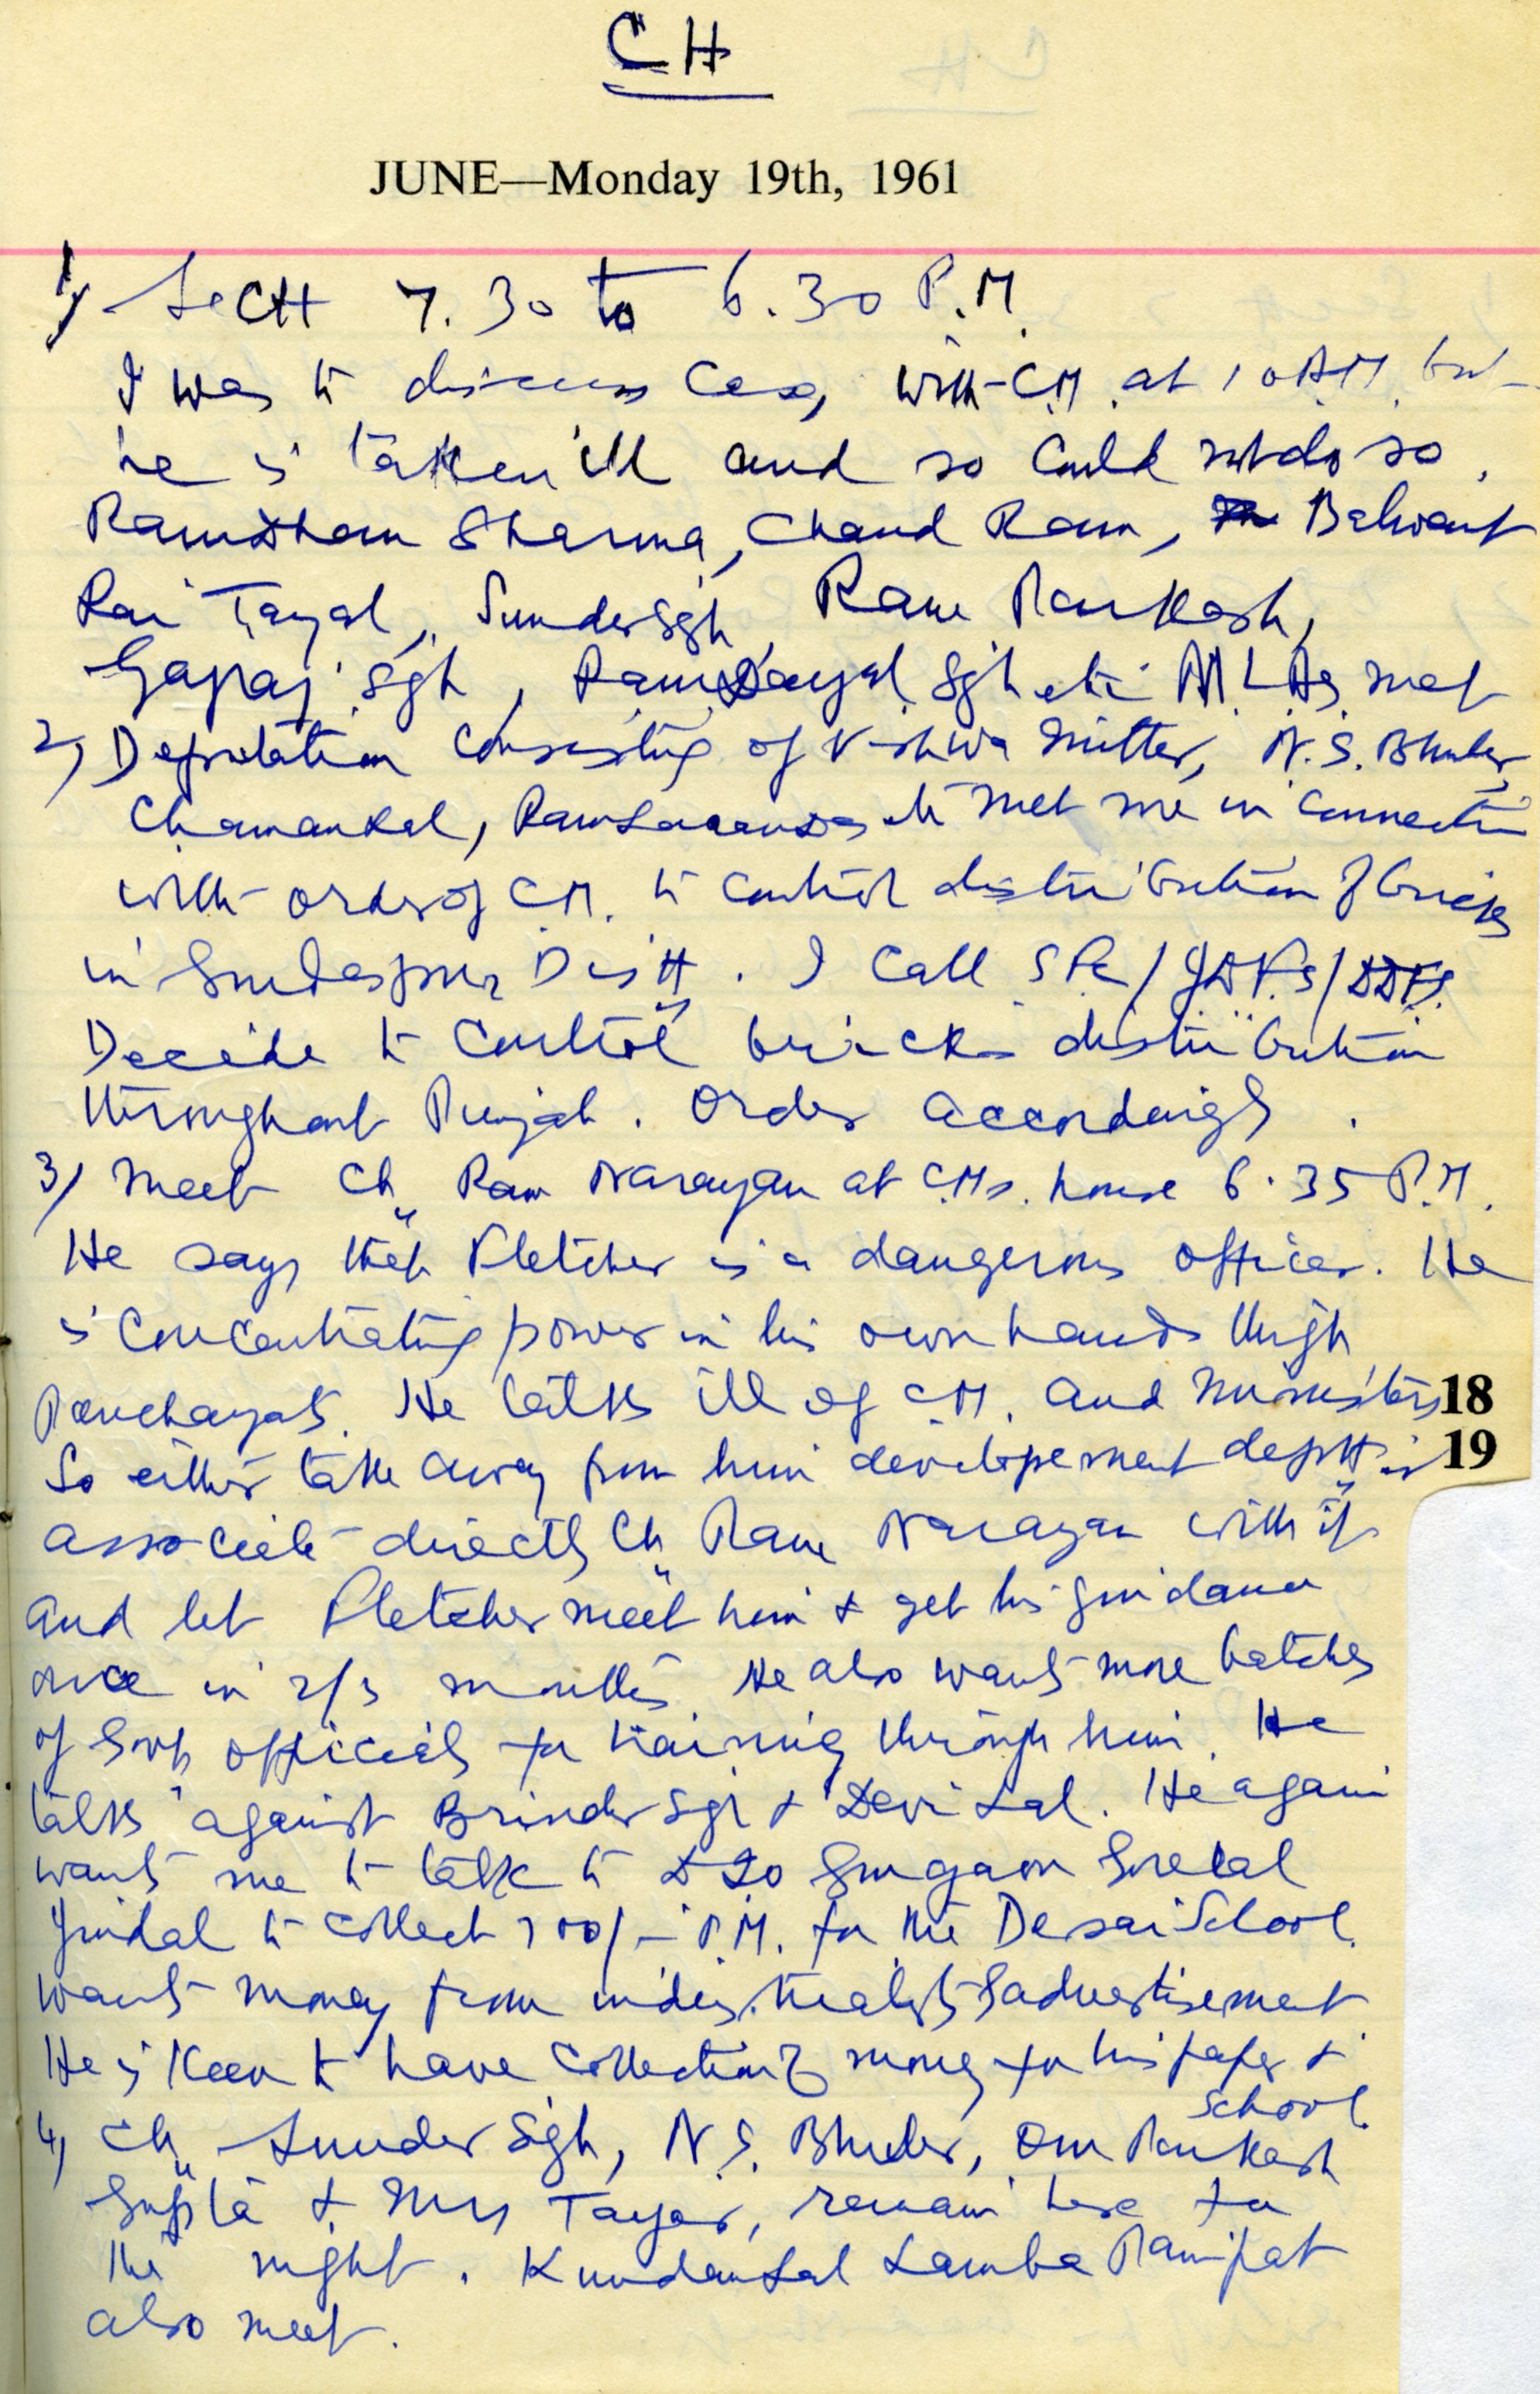 CH
JUNE—Monday 19th, 1961
1) Sectt 7.30 to 6.30 P.M.
I was to discuss Cases with C.M. at 10 A.M. but
he is taken ill and so could not do so.
Ramdhan Sharma, Chand Ram, Balwant
Rai Tayal, Sunder Sgh, Ram Parkash,
Gajraj Sgh, Ram Dayal Sgh etc M.L.As met
2) Deputation consisting of Vishwa Mitter, N.S. Bhuler,
Chamanlal, Ramsarandas etc met me in connection
with order of C.M. to control distribution of bricks
in Gurdaspur Distt. I call
Decide to control bricks distribution
throughout Punjab. Order accordingly.
3) Meet Ch. Ram Narayan at C.Ms. house 6.35 P.M.
He says that Fletcher is a dangerous officer. He
is concentrating power in his own hands through
Panchayats. He talks ill of C.M. and Ministers
18
So either take away from him developement deptt or
19
associate directly Ch. Ram Narayan with it
and let Fletcher meet him & get his guidance
once in 2/3 months. He also wants more batches
of Govt officials for training through him. He
talks against Brinder Sgh & Devi Lal. He again
wants me to talk to Gurgaon
Jindal to collect 700/- P.M. for the Desai School.
Wants money from industrialists advertisement
He is keen to have collection of money for his paper &
School.
4) Ch. Sunder Sgh, N.S. Bhuler, Om Parkash
Gupta & Mrs Tayar, remain here for
the night. Kundanlal Lamba Panipat
also meet.